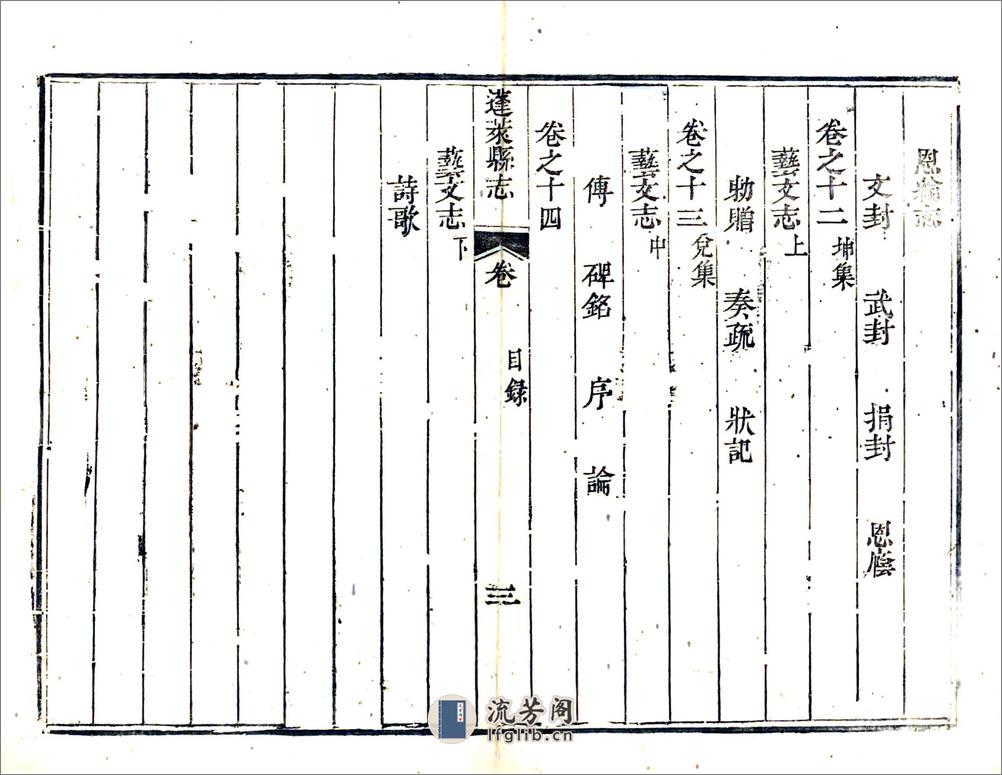 恩綸志
文封 武封 捐封 恩廕
卷之十二 坤集
藝文志 上
勅贈 奏疏 狀記
卷之十三 兌集
藝文志 中
傳 碑銘 序 論
卷之十四
蓬萊縣志 卷 目録 三
藝文志 下
詩歌
流芳阁
lfglib.cn